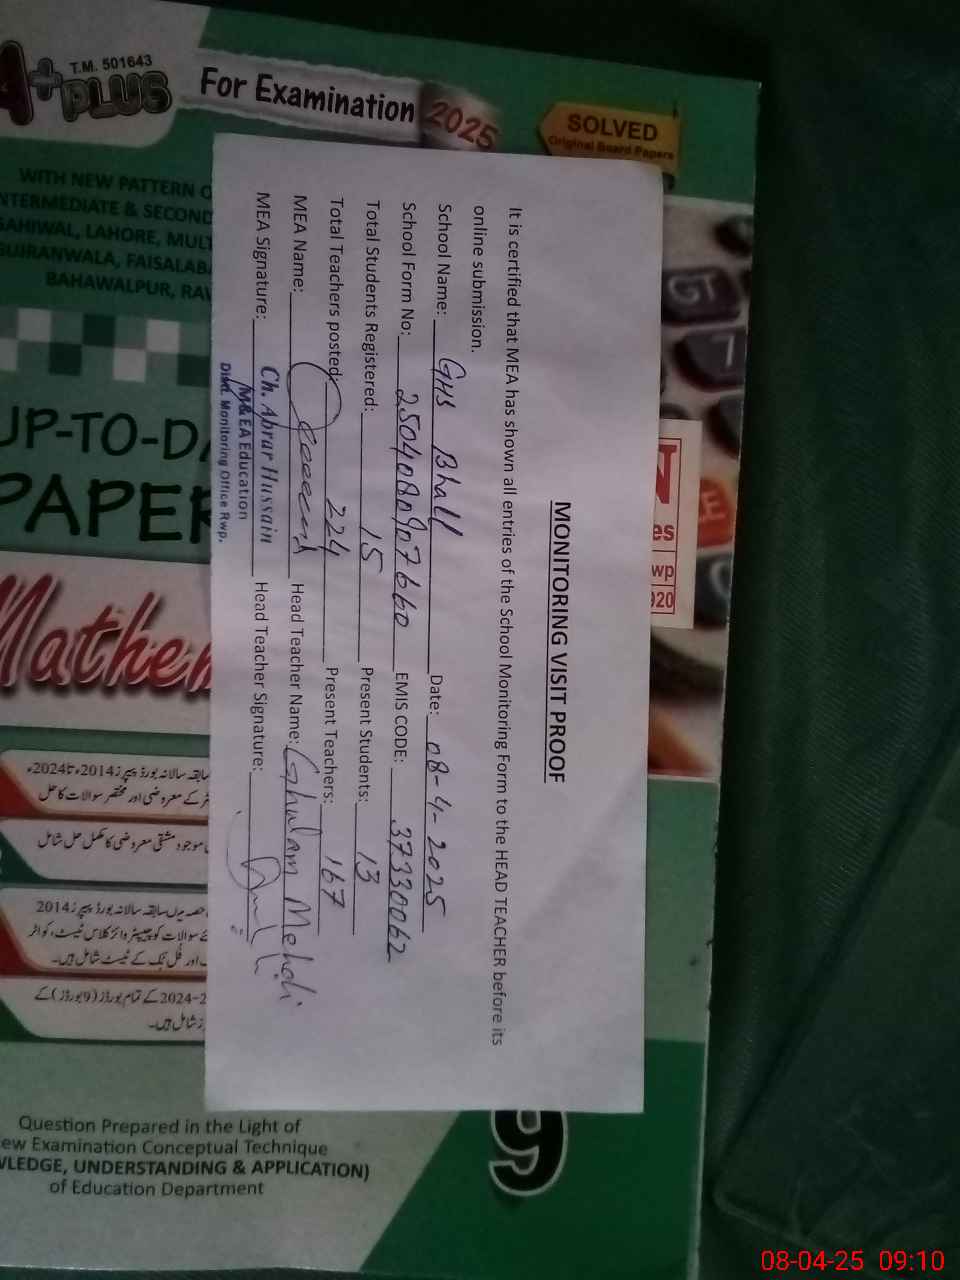 A+ PLUS
T.M. 501643
For Examination 2025
SOLVED
Original Board Papers
WITH NEW PATTERN
INTERMEDIATE & SECOND
SAHIWAL, LAHORE, MULT
GUJRANWALA, FAISALAB
BAHAWALPUR, RAW
UP-TO-DA
PAPER
Mathem
MONITORING VISIT PROOF
It is certified that MEA has shown all entries of the School Monitoring Form to the HEAD TEACHER before its
online submission.
School Name: GHS Bhall Date: 08-4-2025
School Form No: 2504080907660 EMIS CODE: 37330062
Total Students Registered: 15 Present Students: 13
Total Teachers posted: 224 Present Teachers: 167
MEA Name: Head Teacher Name: Ghulam Mehdi
MEA Signature: Ch. Abrar Hussain Head Teacher Signature:
M&EA Education
Distt. Monitoring Office Rwp.
GT
7
N
es
wp
920
سابقہ سالانہ بورڈ پیپرز 2014ء تا 2024ء
کے معروضی اور مختصر سوالات کا حل
موجود مشقی معروضی کا مکمل حل شامل
حصہ میں سابقہ سالانہ بورڈ پیپرز 2014
سوالات کو چیپٹر وائز کلاس ٹیسٹ، کوائر
اور فل بک کے ٹیسٹ شامل ہیں۔
2024-2 کے تمام بورڈز (9 بورڈز) کے
شامل ہیں۔
9
Question Prepared in the Light of
ew Examination Conceptual Technique
WLEDGE, UNDERSTANDING & APPLICATION)
of Education Department
08-04-25 09:10